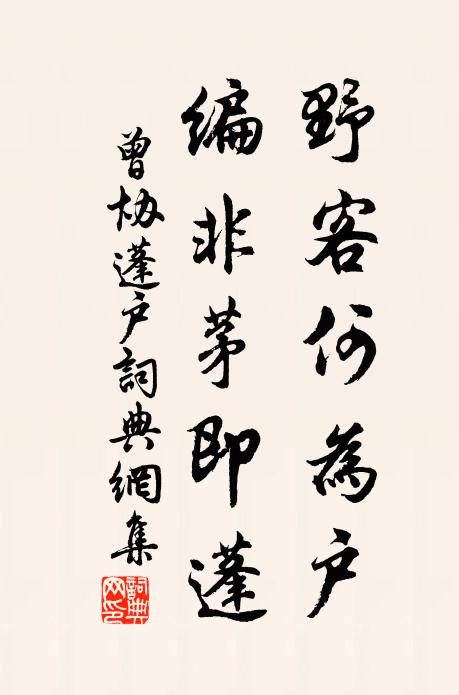 野客何為户
編非茅即蓬
曾协蓬户詞典網集
詞典网印